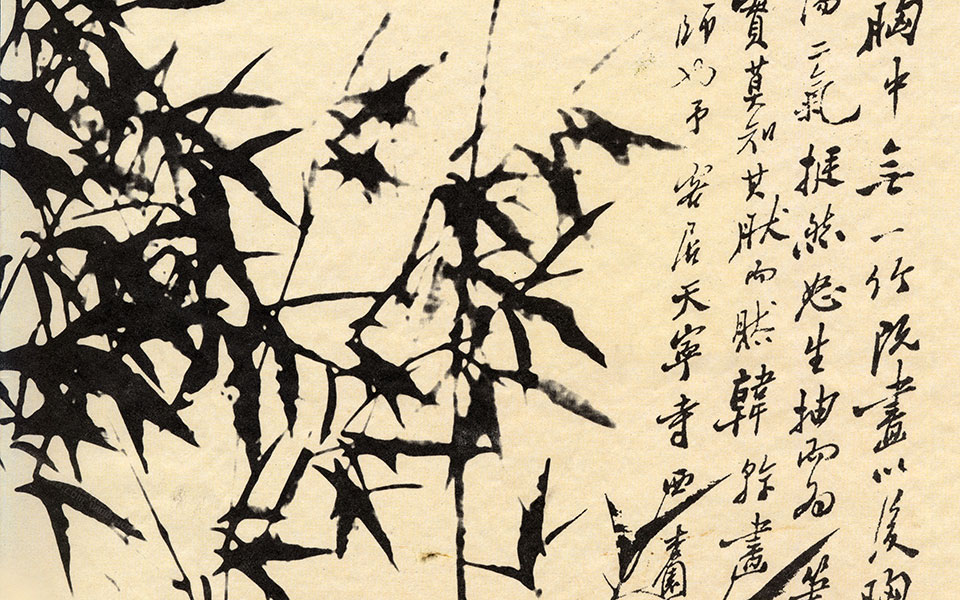 胸中無一竹既畫以後胸
二氣挺然怒生抽而為
實莫知其肰而然韓幹畫
師也予客居天寧寺西